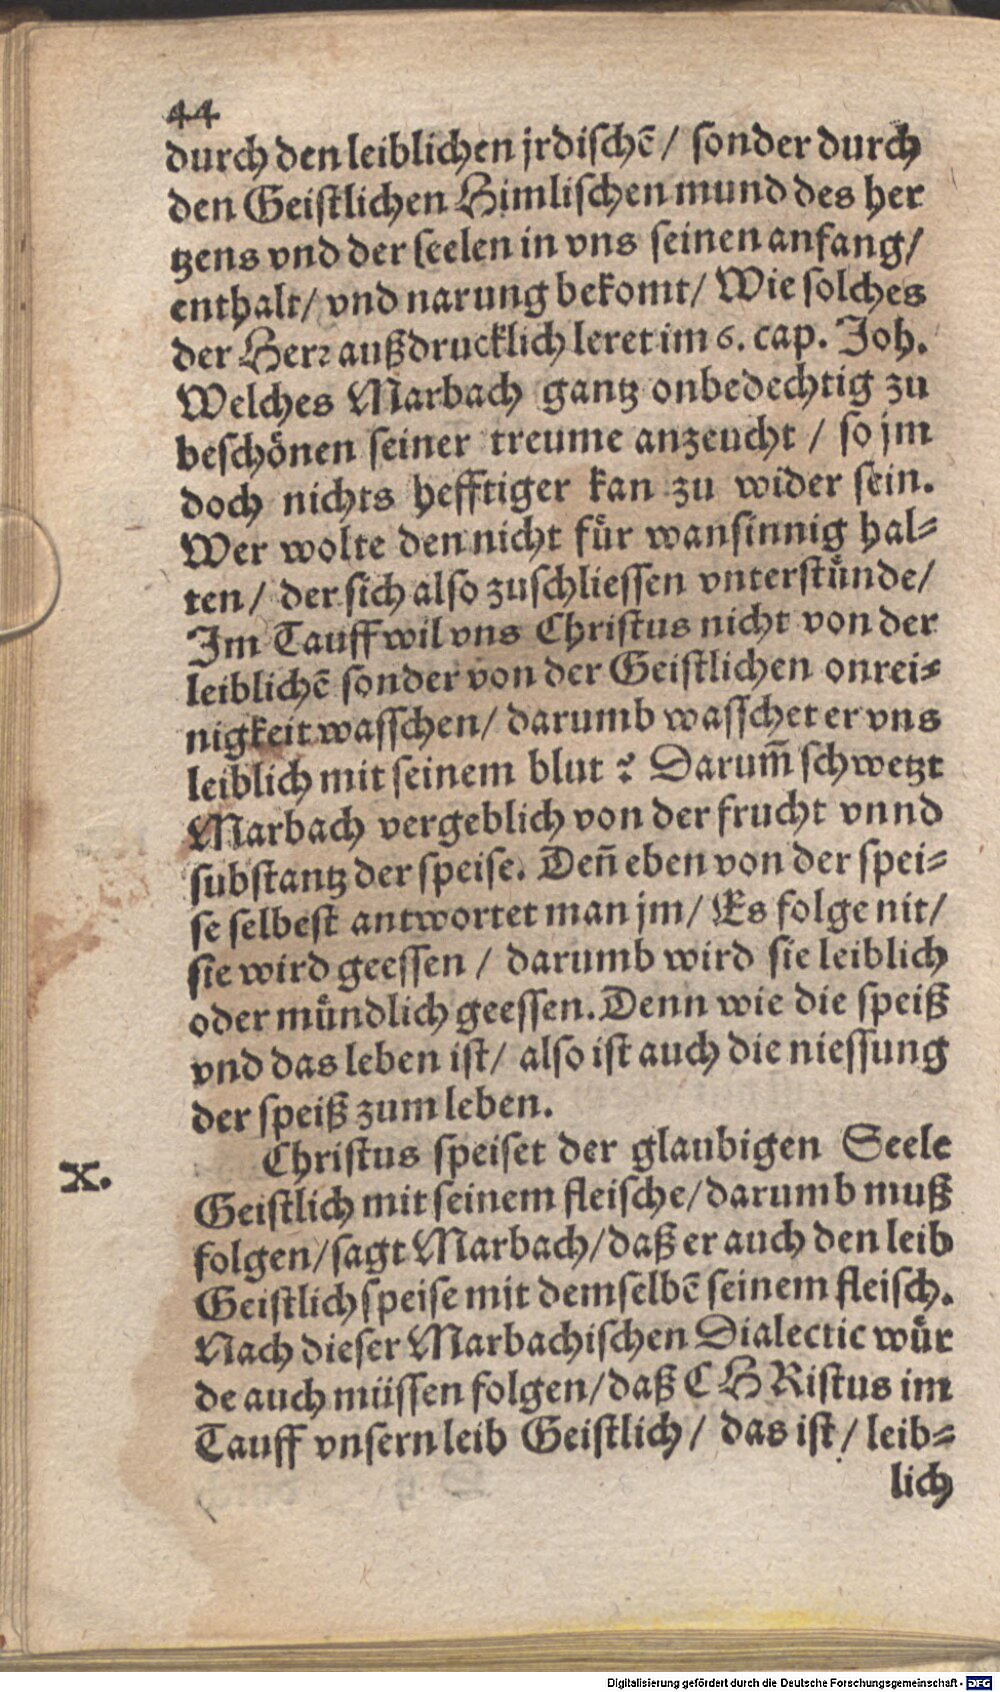 44
durch den leiblichen jrdischē / sonder durch
den Geistlichen Himlischen mund des her
tzens vnd der seelen in vns seinen anfang/
enthalt/ vnd narung bekomt/ Wie solches
der Herr außdrucklich leret im 6. cap. Joh.
Welches Marbach gantz onbedechtig zu
beschönen seiner treume anzeucht / so jm
doch nichts hefftiger kan zu wider sein.
Wer wolte den nicht für wansinnig hal-
ten/ der sich also zuschliessen vnterstünde/
Im Tauff wil vns Christus nicht von der
leiblichē sonder von der Geistlichen onrei-
nigkeit wasschen/ darumb wasschet er vns
leiblich mit seinem blut ? Darum̃ schwetzt
Marbach vergeblich von der frucht vnnd
substantz der speise. Den̄ eben von der spei-
se selbest antwortet man jm/ Es folge nit/
sie wird geessen / darumb wird sie leiblich
oder mündlich geessen. Denn wie die speiß
vnd das leben ist/ also ist auch die niessung
der speiß zum leben.
X. Christus speiset der glaubigen Seele
Geistlich mit seinem fleische/ darumb muß
folgen/ sagt Marbach/ daß er auch den leib
Geistlich speise mit demselbē seinem fleisch.
Nach dieser Marbachischen Dialectic wür
de auch müssen folgen/ daß CHRistus im
Tauff vnsern leib Geistlich/ das ist/ leib-
lich
Digitalisierung gefördert durch die Deutsche Forschungsgemeinschaft - DFG